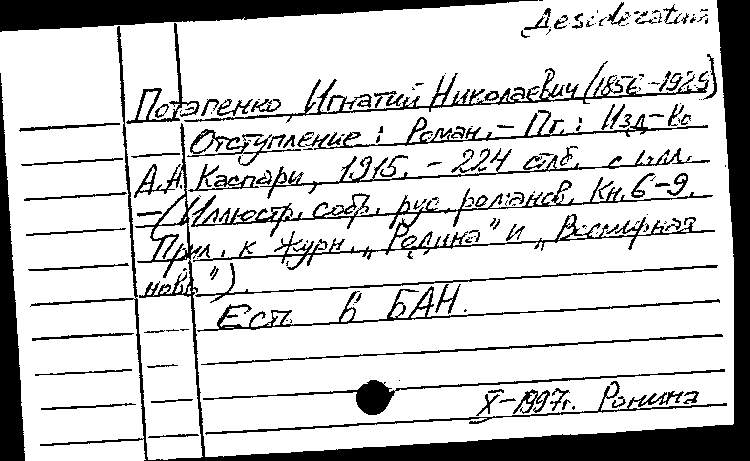 Desideratum
Потапенко, Игнатий Николаевич (1856-1929)
Отступление: Роман. - Пг.: Изд-во
А.А. Каспари, 1915. - 224 стлб. с илл.
- (Иллюстр. собр. рус. романов. Кн. 6-9.
Прил. к журн. „Родина" и „Всемирная
новь").
Есть в БАН.
X-1997г. Ронина